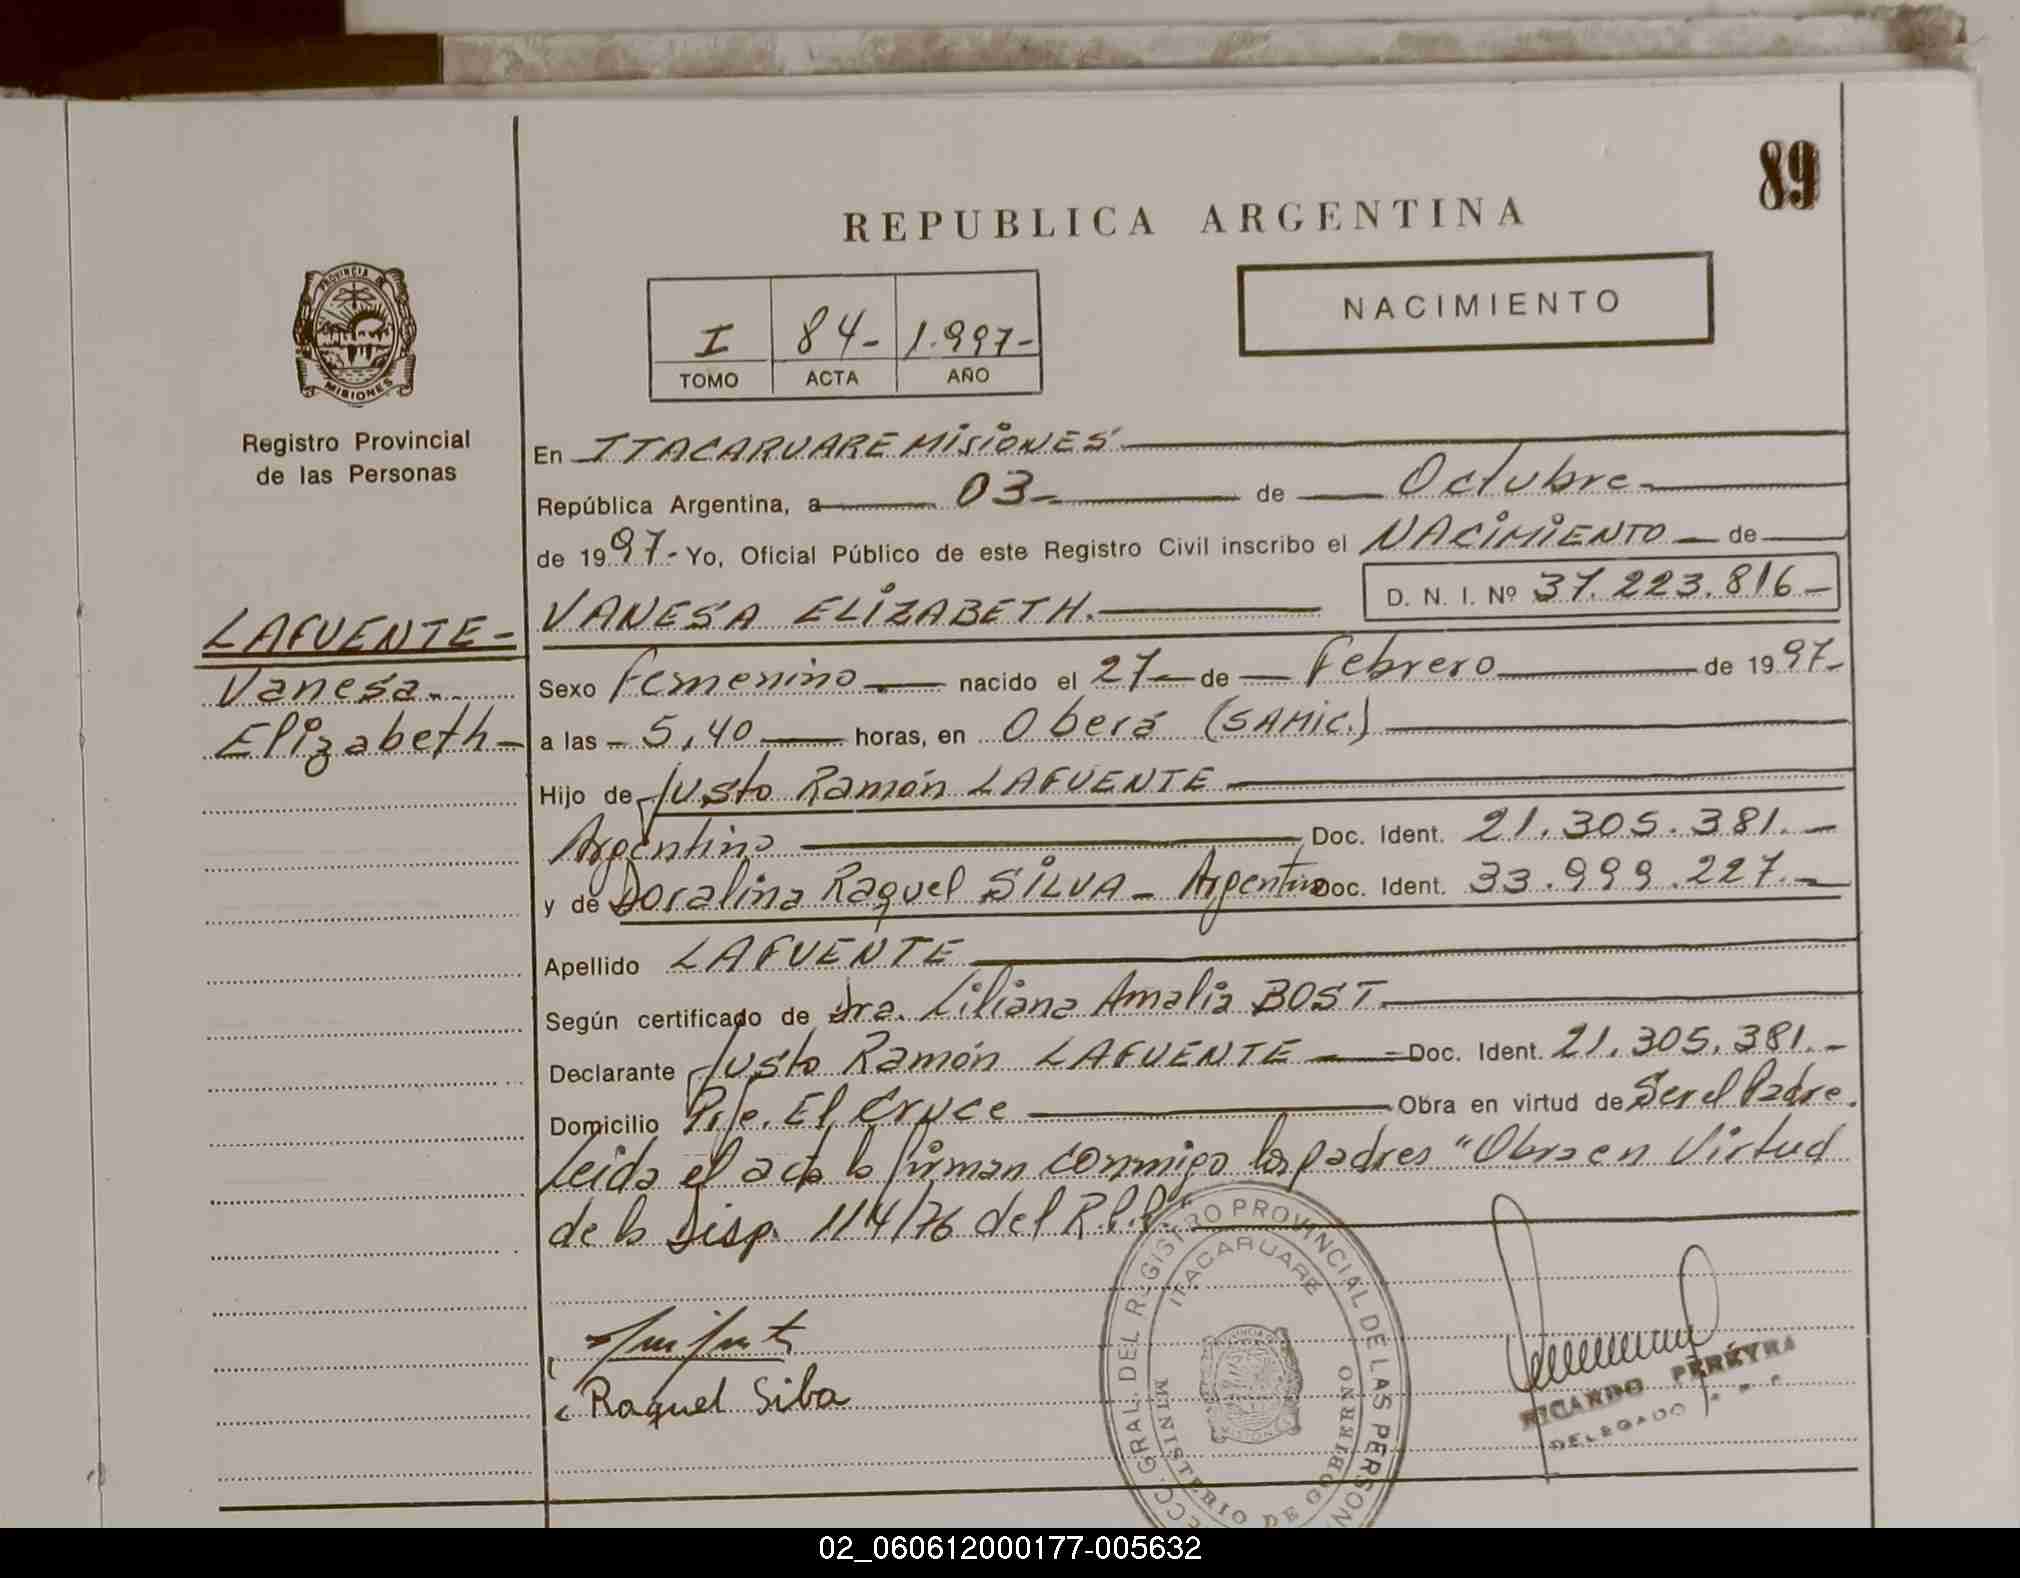 89
REPUBLICA ARGENTINA
PROVINCIA DE
MISIONES
Registro Provincial
de las Personas
I 84- 1.997-
TOMO ACTA AÑO
NACIMIENTO
En ITACARUARE MISIONES
República Argentina, a 03- de Octubre-
de 1997- Yo, Oficial Público de este Registro Civil inscribo el NACIMIENTO de
VANESA ELIZABETH.
D. N. I. Nº 37.223.816-
LAFUENTE-
Vanesa
Elizabeth-
Sexo Femenino nacido el 27 de Febrero de 1997-
a las 5,40 horas, en Oberá (SAMIC.)
Hijo de Justo Ramón LAFUENTE
Argentino Doc. Ident. 21.305.381.-
y de Doralina Raquel SILVA- Argentina Doc. Ident. 33.999.227.-
Apellido LAFUENTE
Según certificado de Dra. Liliana Amalia BOST
Declarante Justo Ramón LAFUENTE Doc. Ident. 21.305.381.-
Domicilio Pje. El Cruce Obra en virtud de Ser el Padre.
Leida el acta la firman conmigo los padres "Obra en Virtud
de la Disp. 114/76 del R.P.P."
Raquel Silba
GRAL. DEL REGISTRO PROVINCIAL DE LAS PERSON
ITACARUARE
MINISTERIO DE GOBIERNO
RICARDO PEREYRA
DELEGADO
02_060612000177-005632